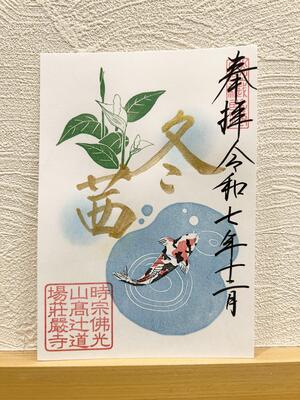 奉拝 令和七年十二月
冬
茜
時宗佛光
山高辻道
場荘嚴寺